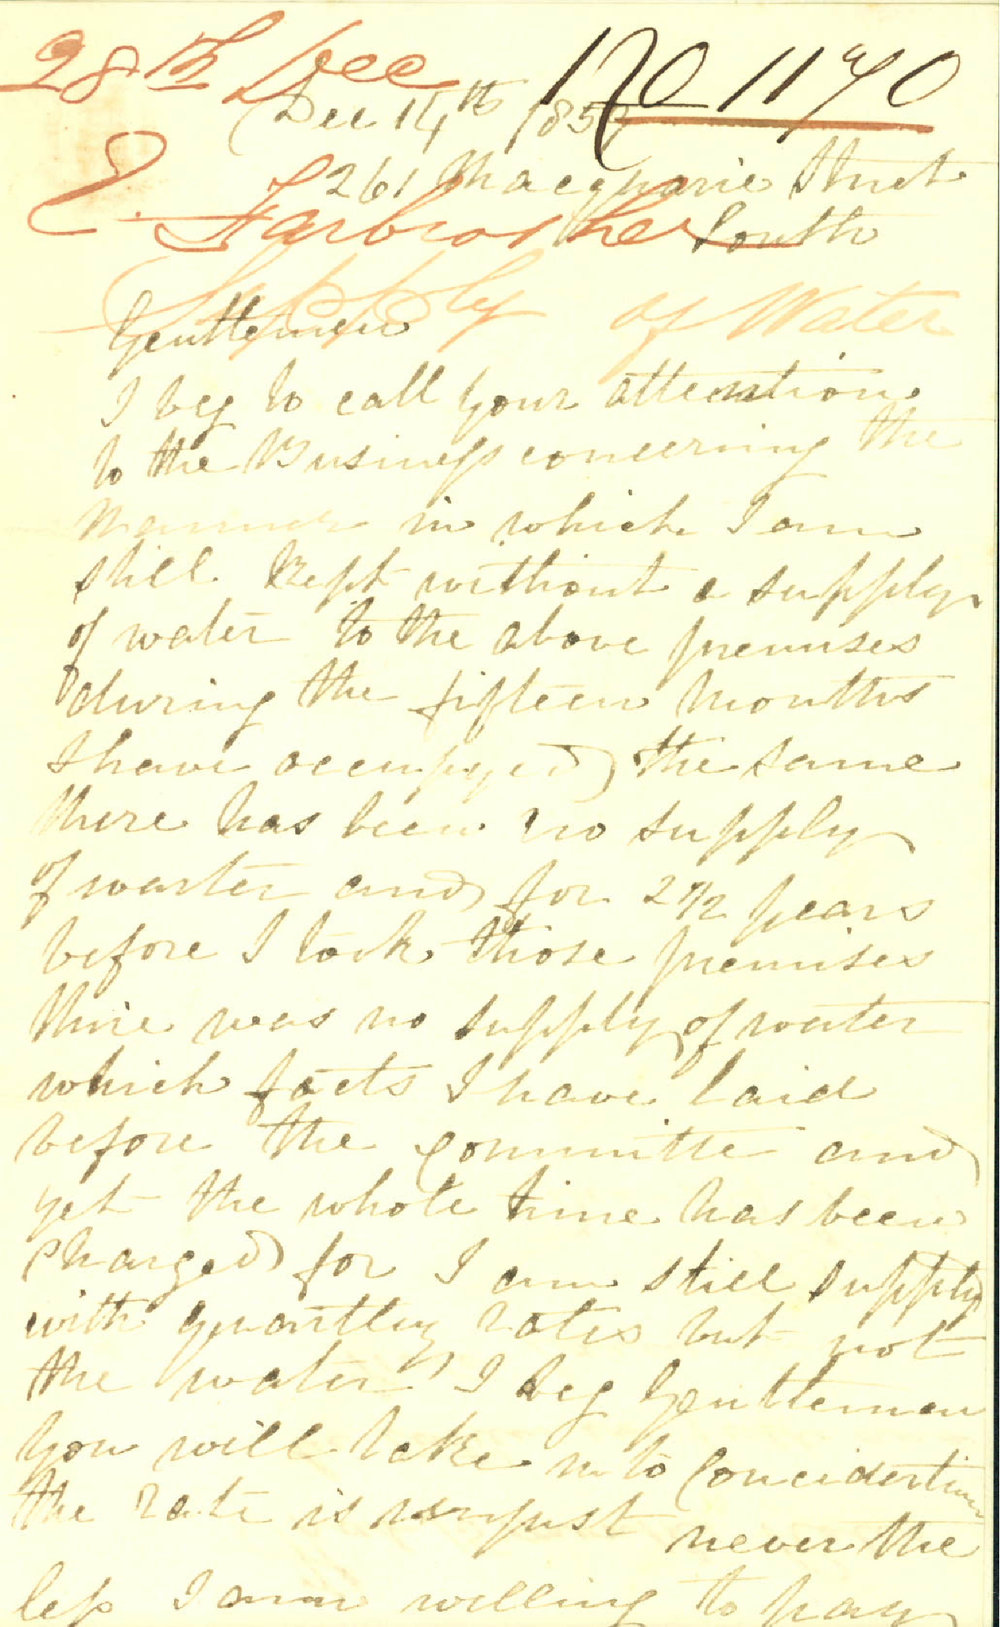 28th Dec
120 11/70
Dec 14th 1857
261 Macquarie Street
E. Fairbrother
South
Supply of Water
Gentlemen
I beg to call your attention
to the Business concerning the
Manner in which I am
still Kept without a supply
of water to the above premises
during the fifteen Months
I have occupyed the same
there has been no supply
of warter and for 2 1/2 years
before I took those premises
there was no supply of water
which facts I have laid
before the Committe and
yet the whole time has been
Charged for I am still supply
with quartley rates but not
the water I beg Gentlemen
you will take in to Concidertion
the rate is unjust never the
less I am willing to pay